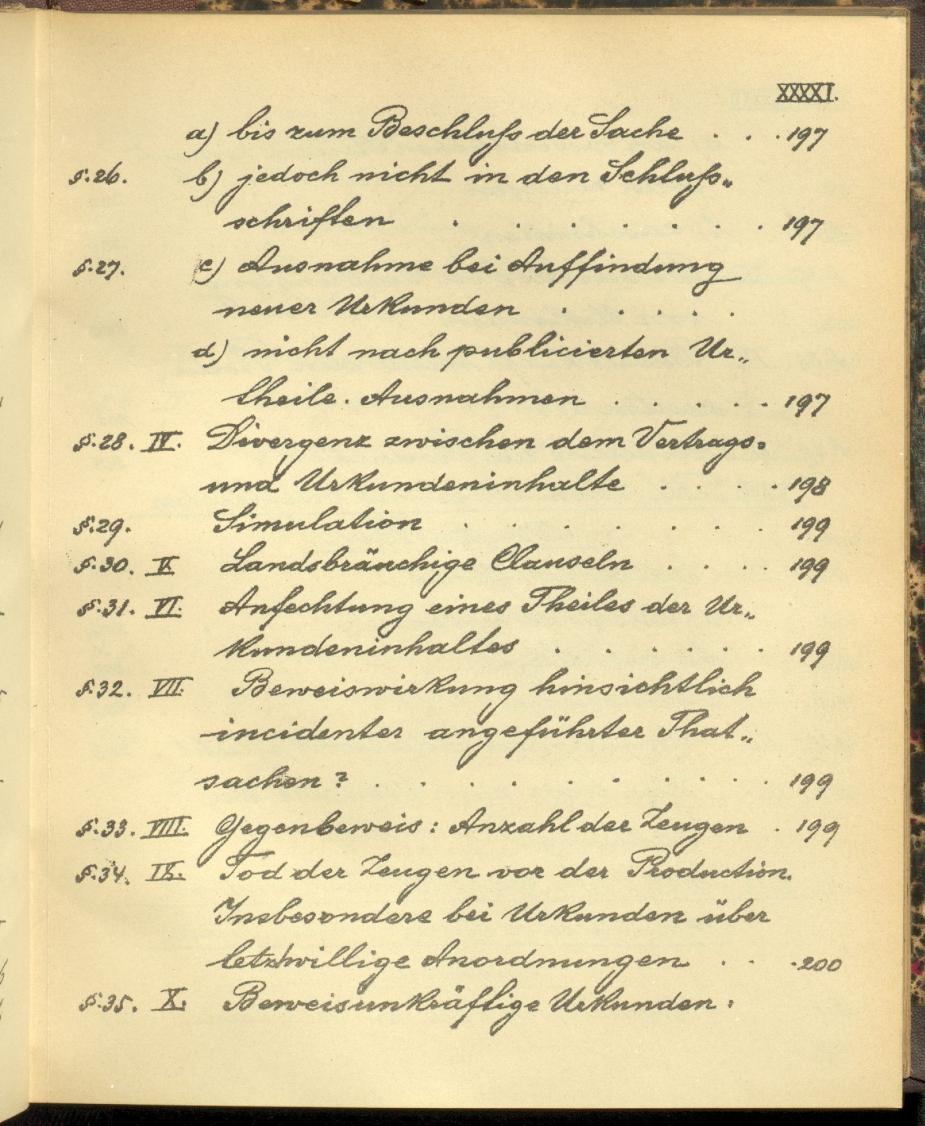 XXXXI.
a) bis zum Beschluß der Sache . . . 197
§.26. b) jedoch nicht in den Schluß„
schriften . . . . . . . . 197
§.27. c) Ausnahme bei Auffindung
neuer Urkunden . . . . .
d) nicht nach publicierten Ur„
theile. Ausnahmen . . . . . . 197
§.28. IV. Divergenz zwischen dem Vertrags=
und Urkundeninhalte . . . . 198
§.29. Simulation . . . . . . . . 199
§.30. V. Landsbräuchige Clauseln . . . . 199
§.31. VI. Anfechtung eines Theiles der Ur„
kundeninhaltes . . . . . . 199
§.32. VII. Beweiswirkung hinsichtlich
incidenter angeführter That„
sachen? . . . . . . . . . 199
§.33. VIII. Gegenbeweis: Anzahl der Zeugen . 199
§.34. IX. Tod der Zeugen vor der Production.
Insbesondere bei Urkunden über
letztwillige Anordnungen . . . 200
§.35. X. Beweisunkräftige Urkunden: